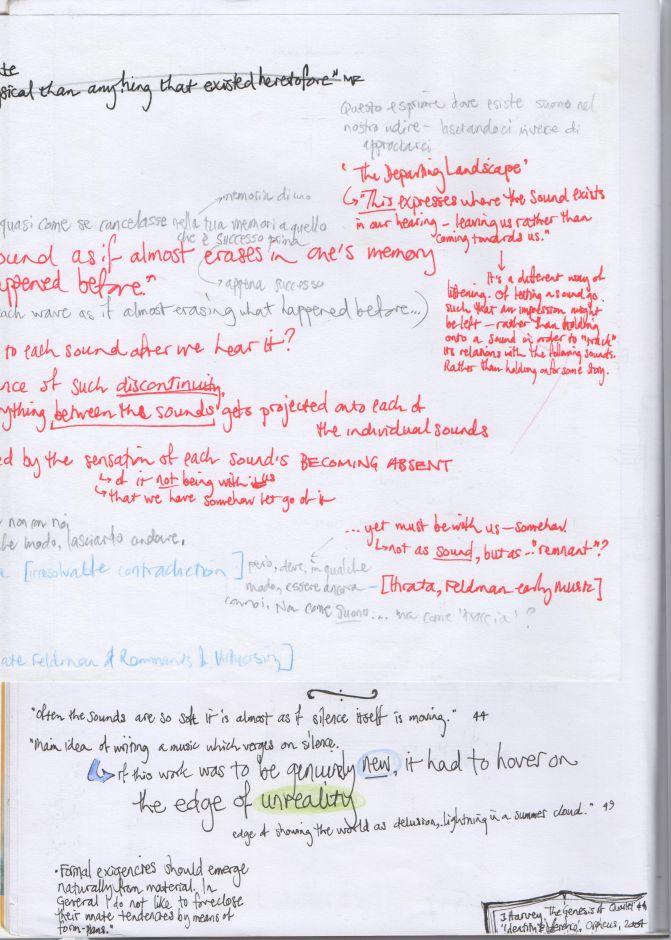 te
sical than anything that existed heretofore" MF
Questo esprime dove esiste suono nel
nostro udire - lasciandoci invece di
approciarci
'The Departing Landscape'
"This expresses where the sound exists
in our hearing - leaving us rather than
coming towards us."
memoria di uno
quasi come se cancelasse nella tua memoria quello
che è successo prima
ound as if almost erases in one's memory
appened before."
appena successo
each wave as if almost erasing what happened before...)
It's a different way of
listening. Of letting a sound go.
such that an impression might
be left - rather than holding
onto a sound in order to "track"
its relations with the following sounds.
Rather than holding on for some story.
to each sound after we hear it?
nce of such discontinuity,
rything between the sounds gets projected onto each of
the individual sounds
ed by the sensation of each sound's BECOMING ABSENT
of it not being with us
that we have somehow let go of it
non con noi
che modo, lasciarlo andare.
... yet must be with us - somehow
not as sound, but as - "remnant"?
[irresolvable contradiction]
però, deve, in qualche
modo, essere ancora
con noi. Non come suono... ma come 'traccia'?
- [thrata, Feldman early music]
ate Feldman & Remnants & Virtuosity]
"Often the sounds are so soft it is almost as if silence itself is moving." 44
"Main idea of writing a music which verges on silence.
If this work was to be genuinely new, it had to hover on
the edge of unreality
edge of showing the world as delusion,.. lightning in a summer cloud." 49
• Formal exigencies should emerge
naturally from material. In
General I do not like to foreclose
their innate tendencies by means of
form-plans."
J. Harvey, 'The Genesis of Quartet 4',
'Identity & Difference', Orpheus, 2004